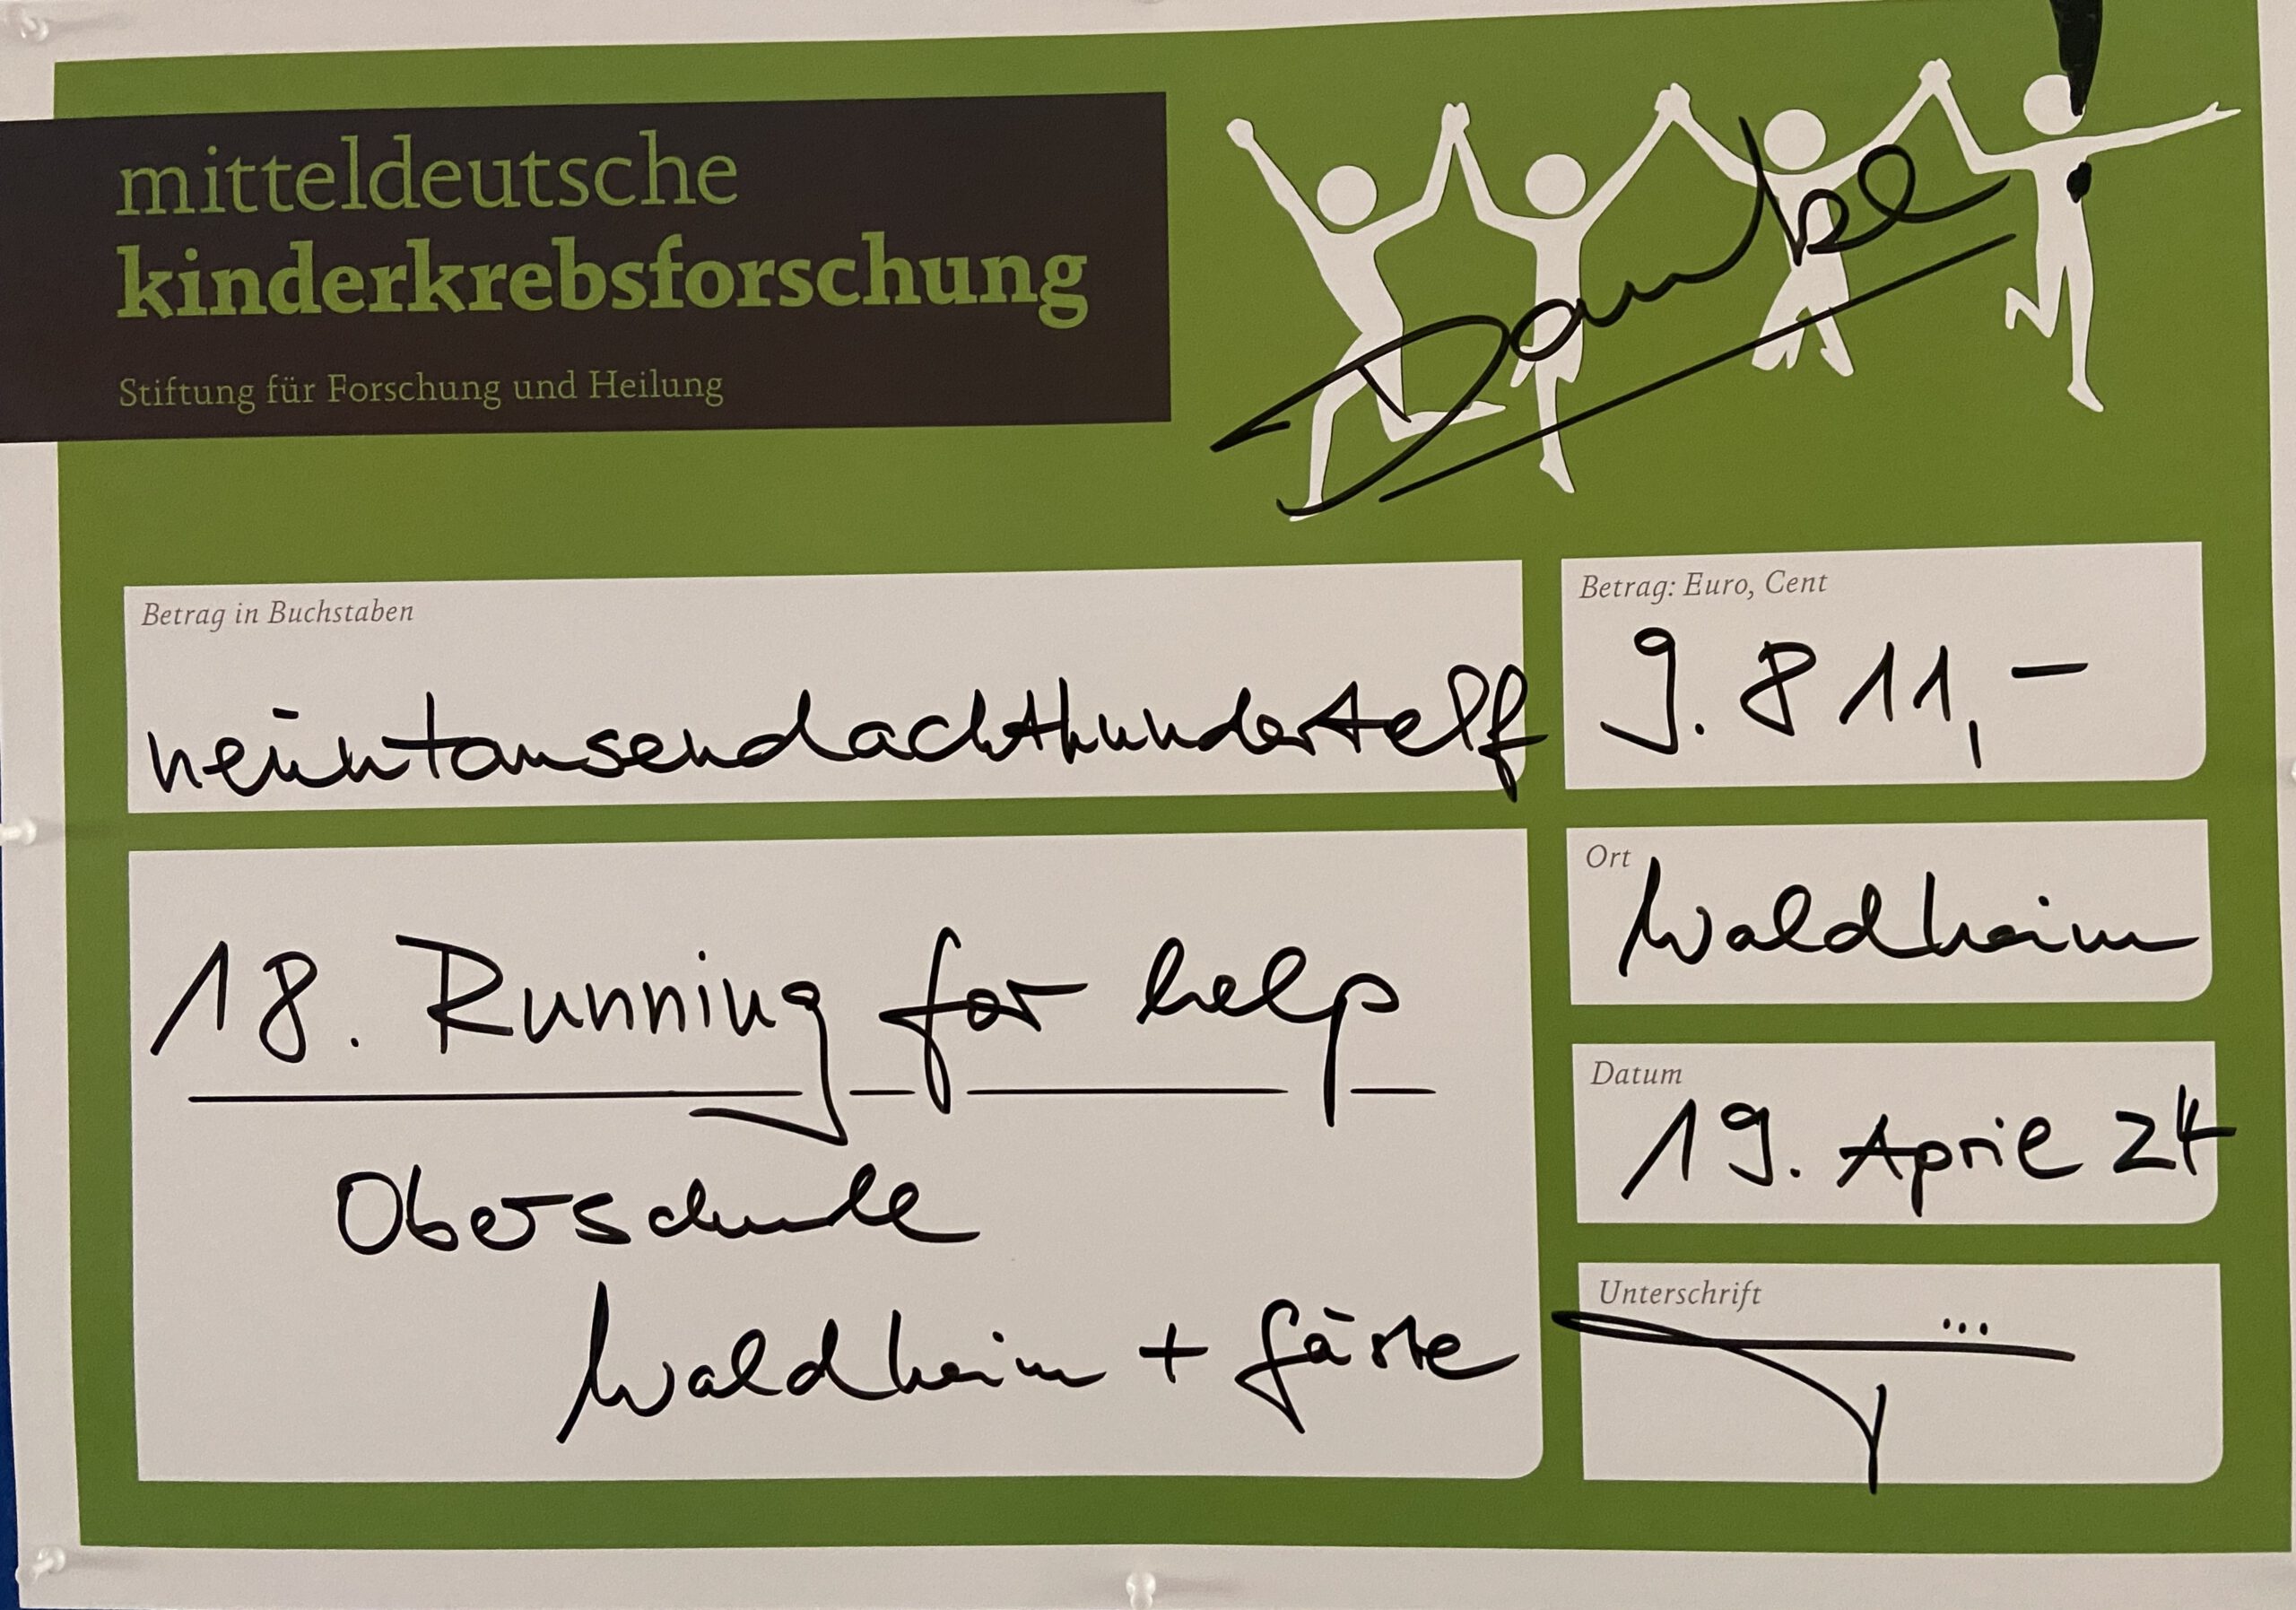 mitteldeutsche
kinderkrebsforschung
Stiftung für Forschung und Heilung
Danke!
Betrag in Buchstaben
neuntausendachthundertelf
Betrag: Euro, Cent
9.811,–
18. Running for help
Oberschule
Waldheim + Gäste
Ort
Waldheim
Datum
19. April 24
Unterschrift